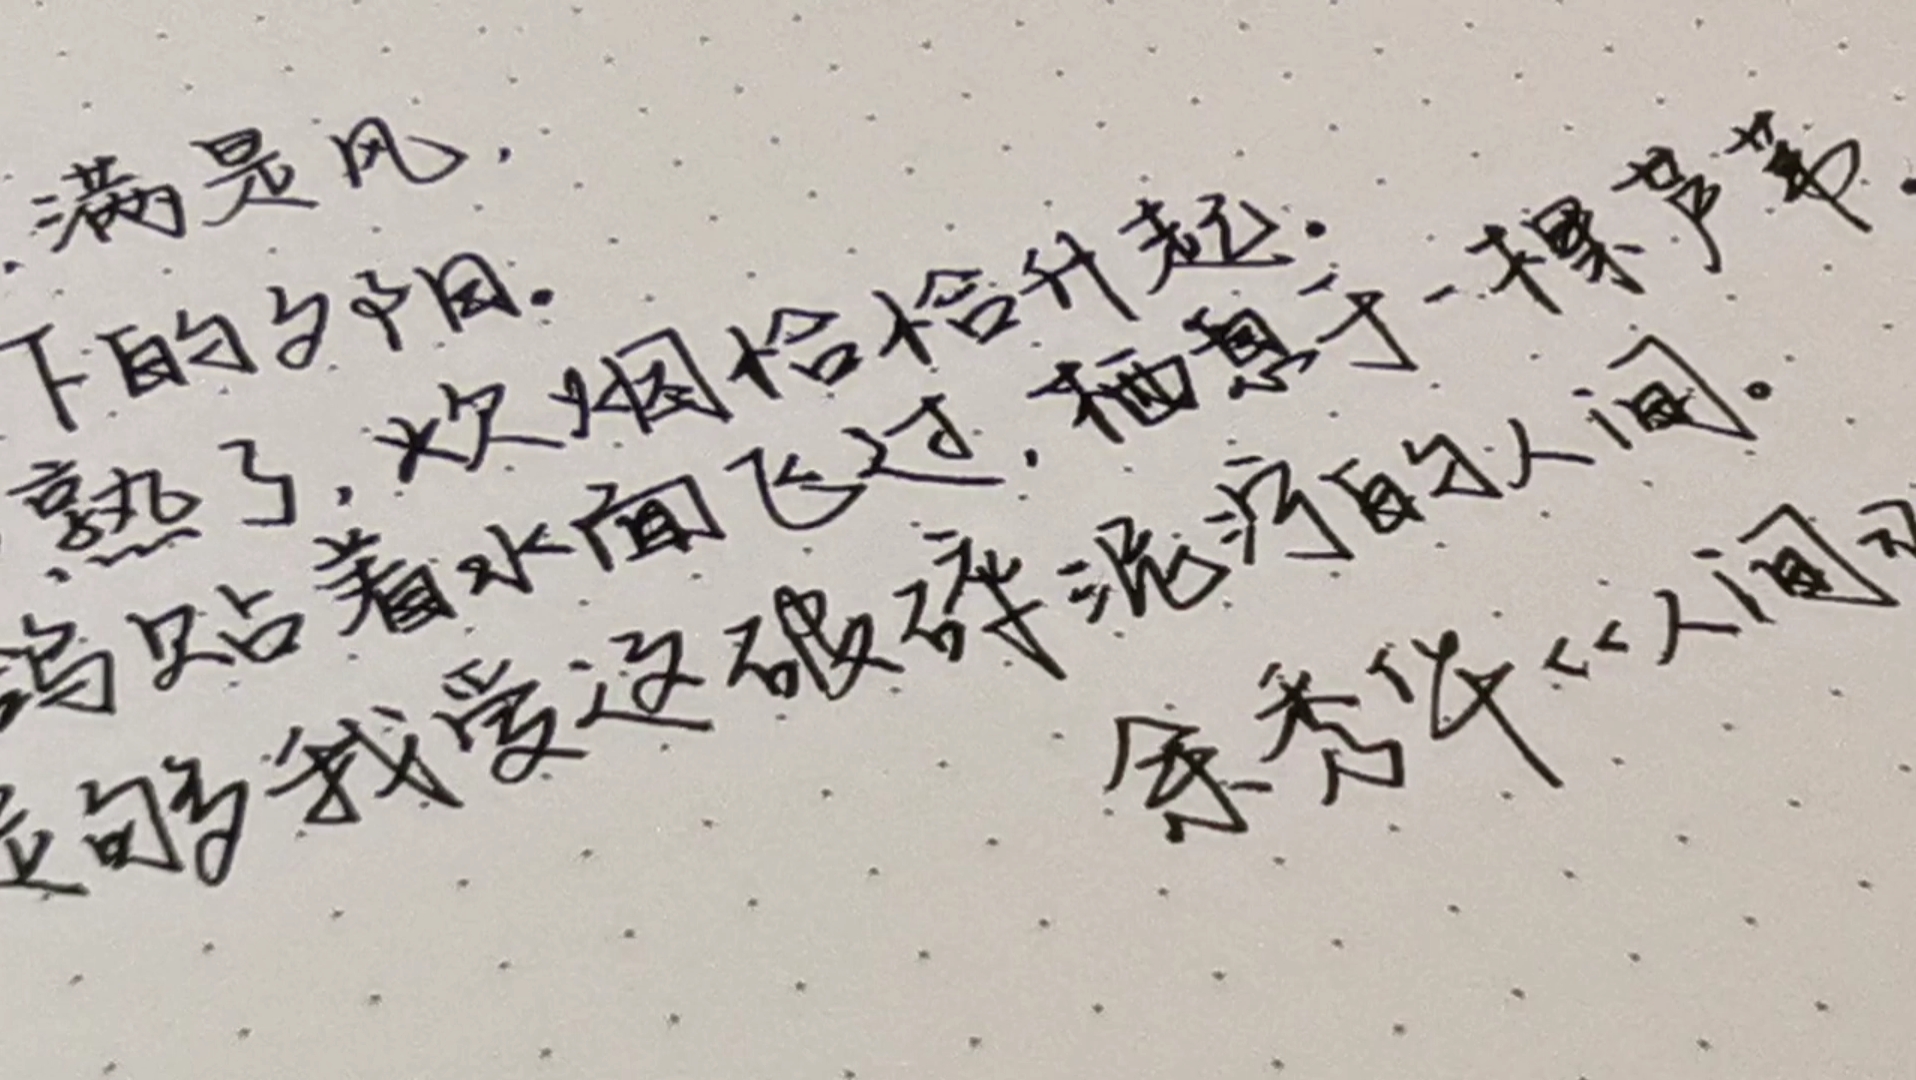 满是风,
下的夕阳.
熟了,炊烟恰恰升起.
贴着水面飞过,栖息于一棵芦苇.
够我爱这破碎泥泞的人间.
余秀华<<人间